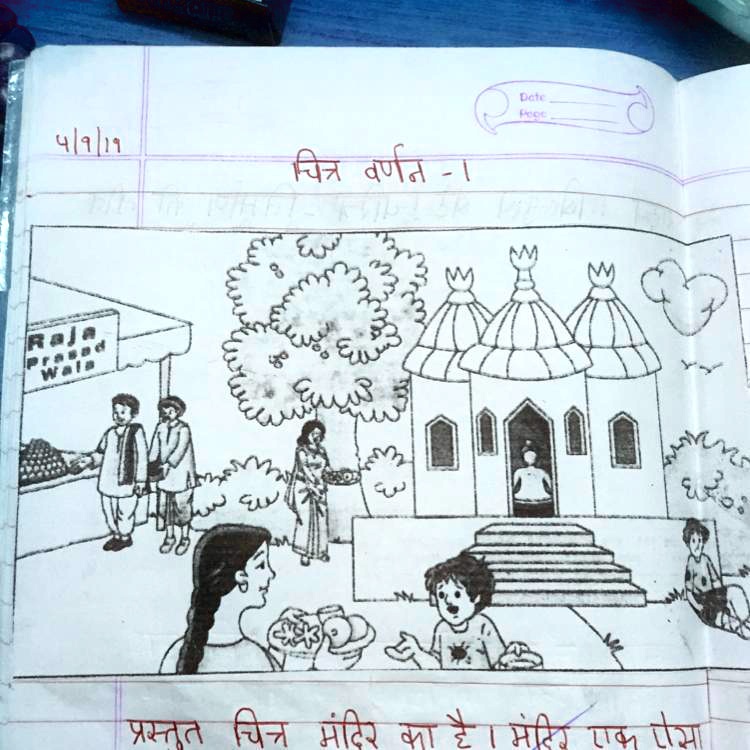 Date
Page
५/९/१९
चित्र वर्णन - १
Raja
Prasad
Wala
प्रस्तुत चित्र मंदिर का है । मंदिर एक ऐसा